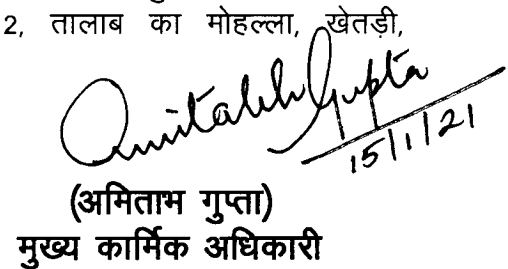 2, तालाब का मोहल्ला, खेतड़ी,
Amitabh Gupta
15/1/21
(अमिताभ गुप्ता)
मुख्य कार्मिक अधिकारी